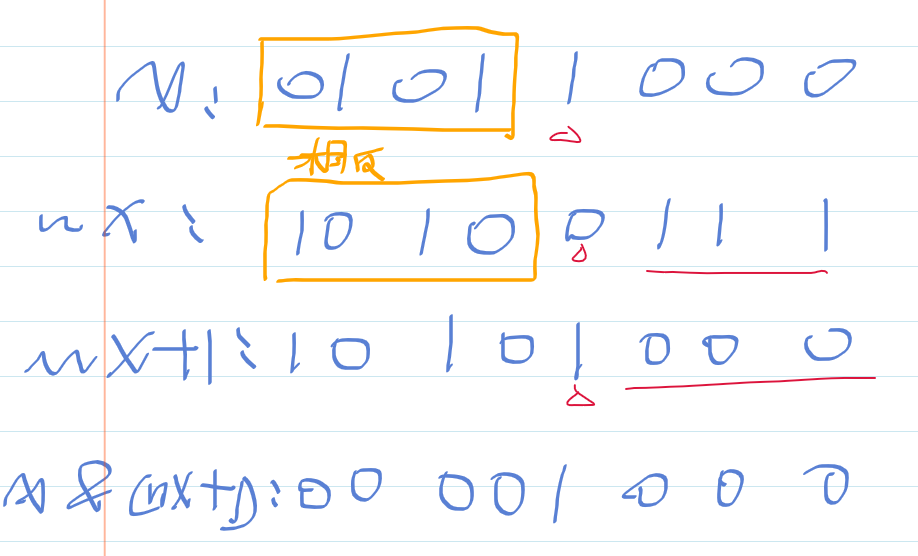 x: 0101 1000
相反
~x: 1010 0111
~x+1: 1010 1000
x&(~x+1): 0000 1000